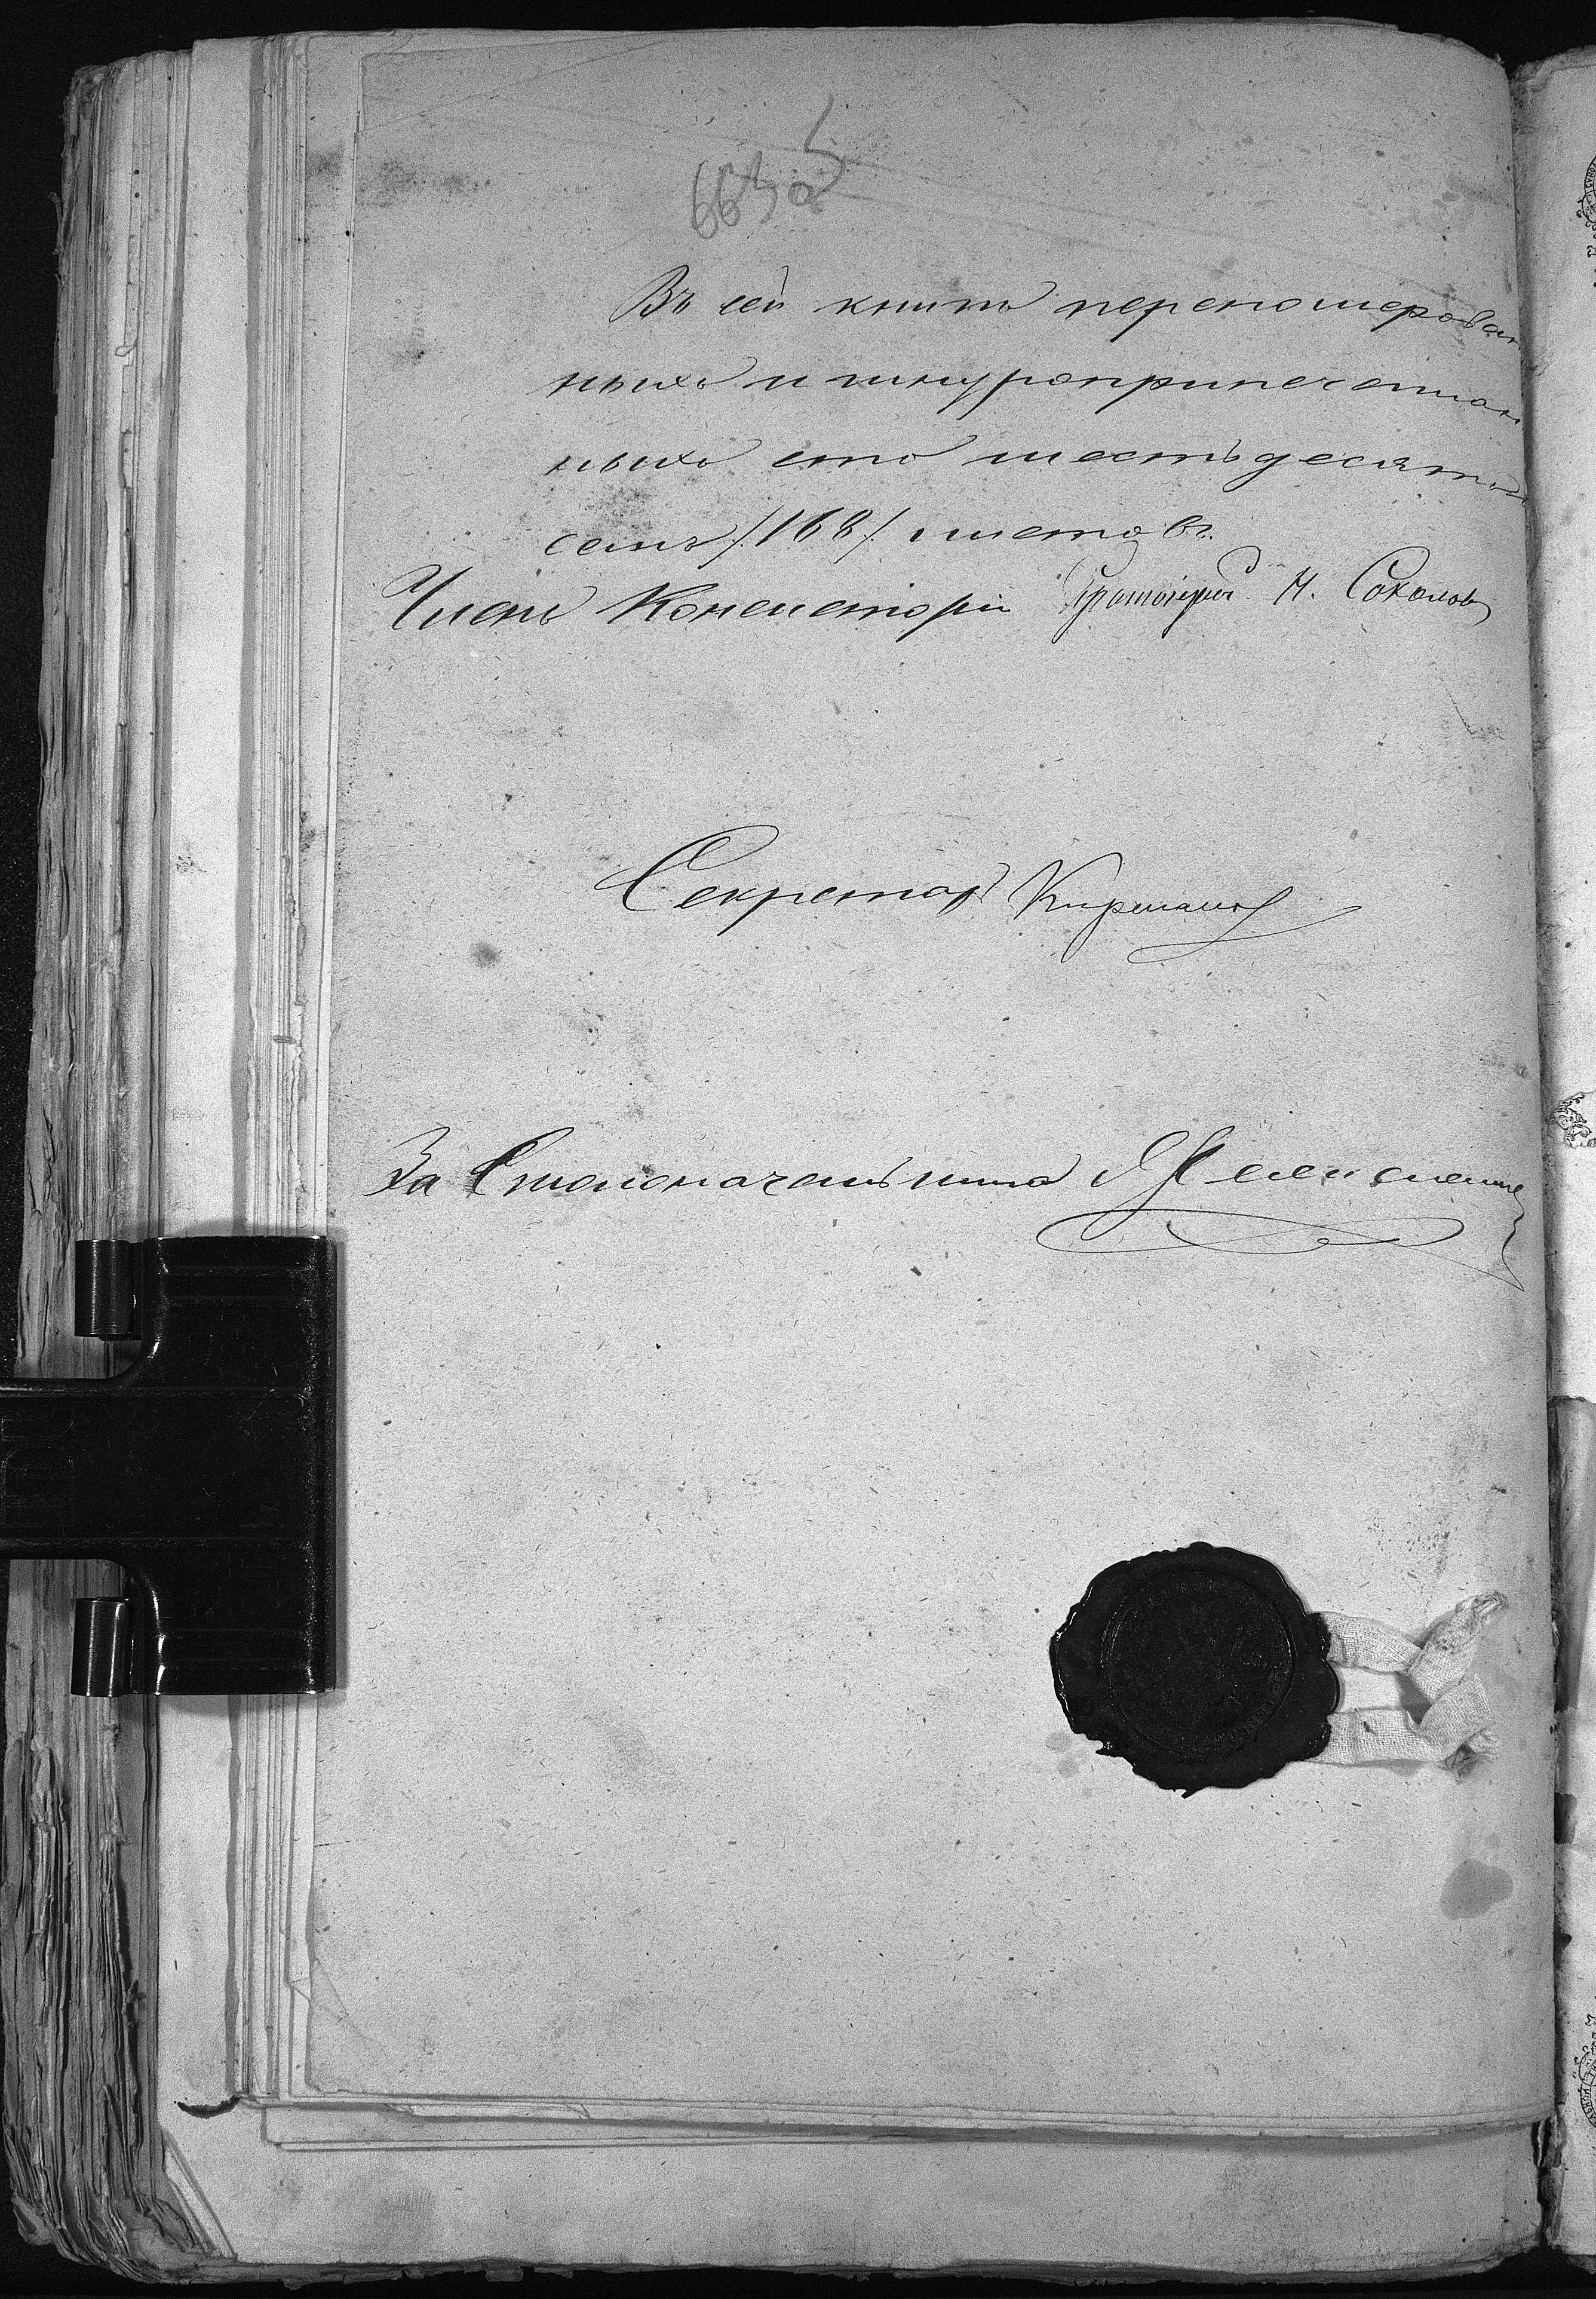 663 об
Въ сей книгѣ переномерован
ныхъ и шнуроприпечатан
ныхъ сто шестьдесятъ
семь /168/ листовъ.
Членъ Консисторіи Протоіерей Н. Соколовъ
Секретарь
За Столоначальника